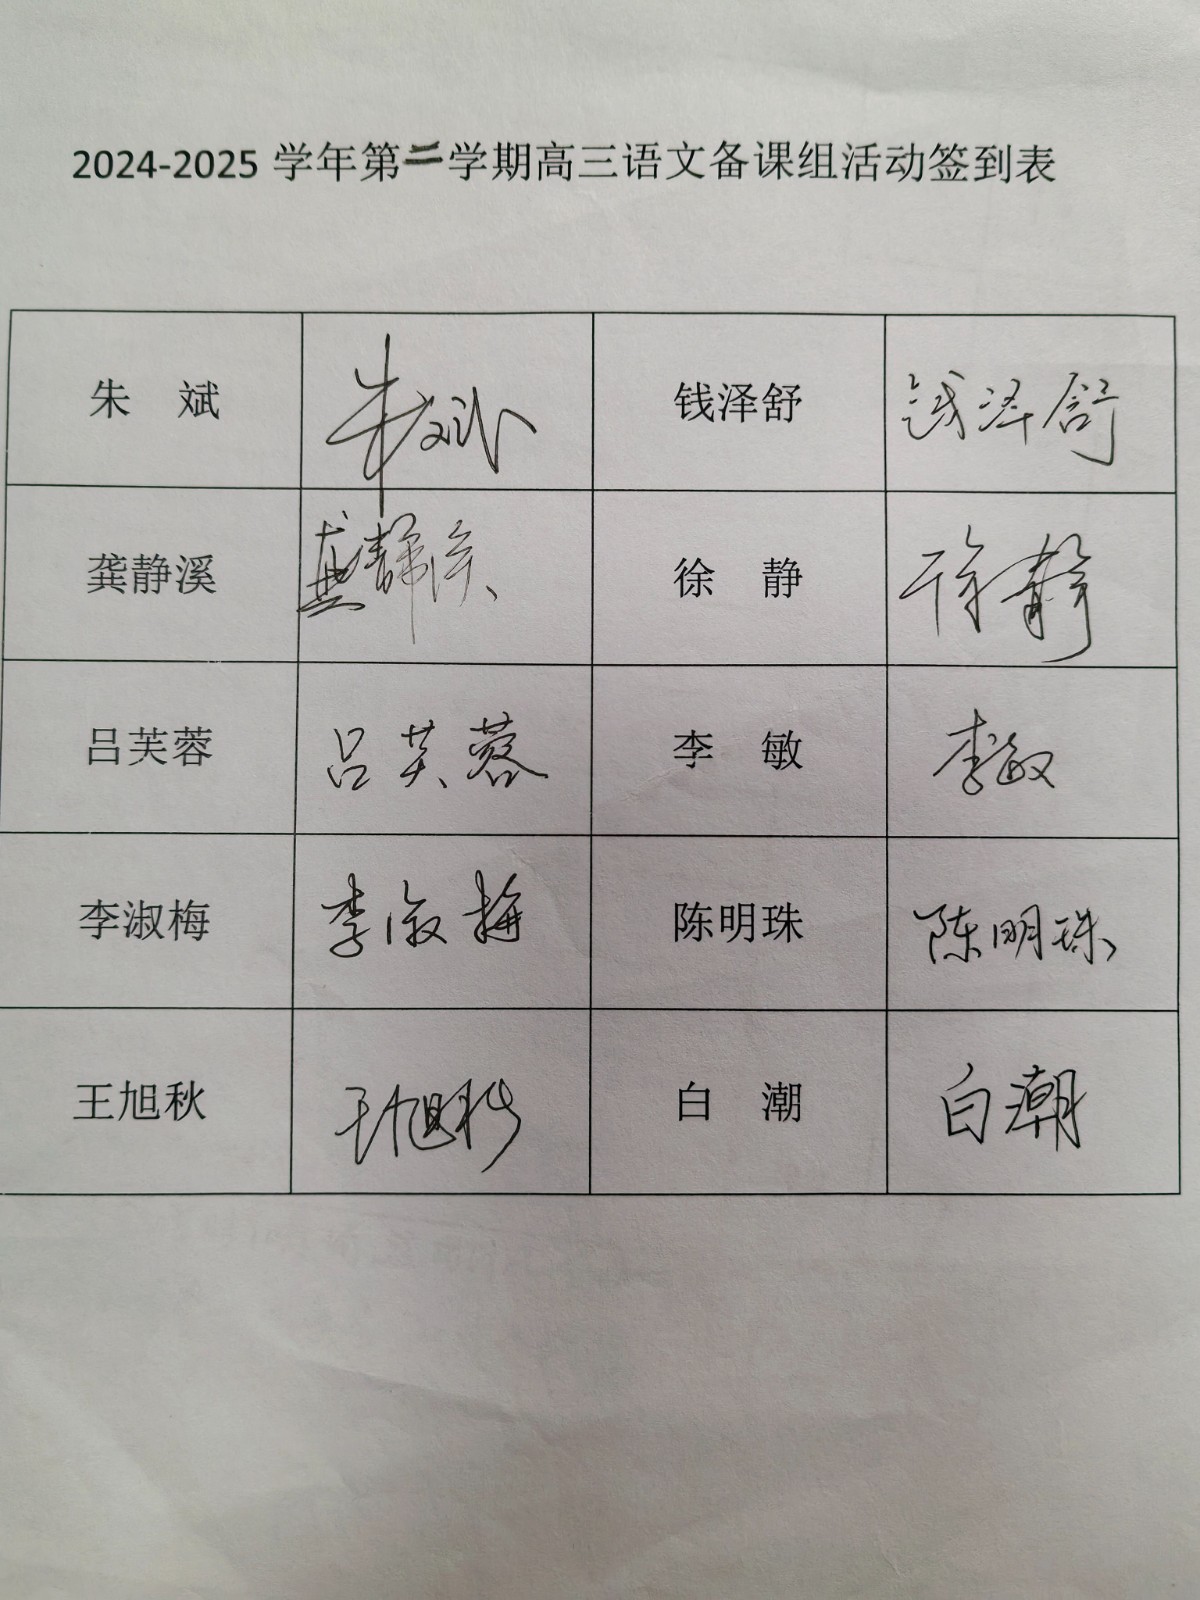 2024-2025 学年第二学期高三语文备课组活动签到表
朱 斌 朱斌 钱泽舒 钱泽舒
龚静溪 龚静溪 徐 静 徐静
吕芙蓉 吕芙蓉 李 敏 李敏
李淑梅 李淑梅 陈明珠 陈明珠
王旭秋 王旭秋 白 潮 白潮